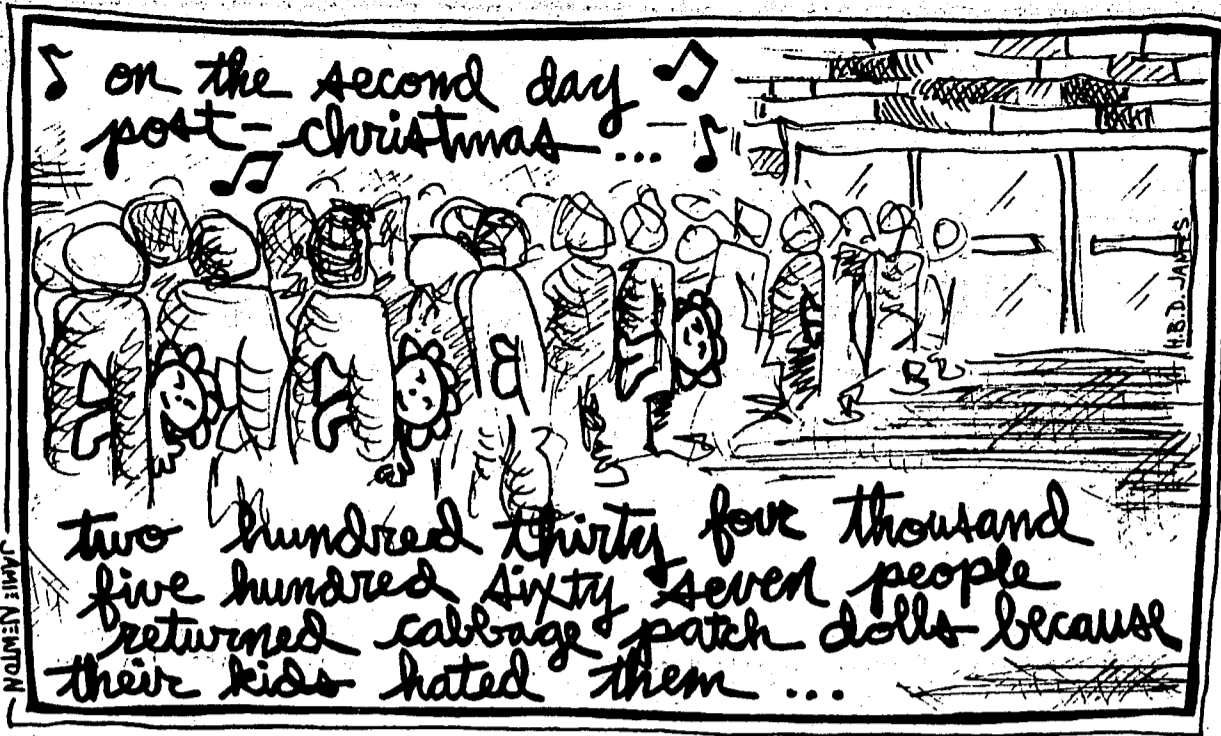 on the second day
post-christmas...
two hundred thirty four thousand
five hundred sixty seven people
returned cabbage patch dolls because
their kids hated them...
H.B.D. JAMES
JAMIE NEWTON